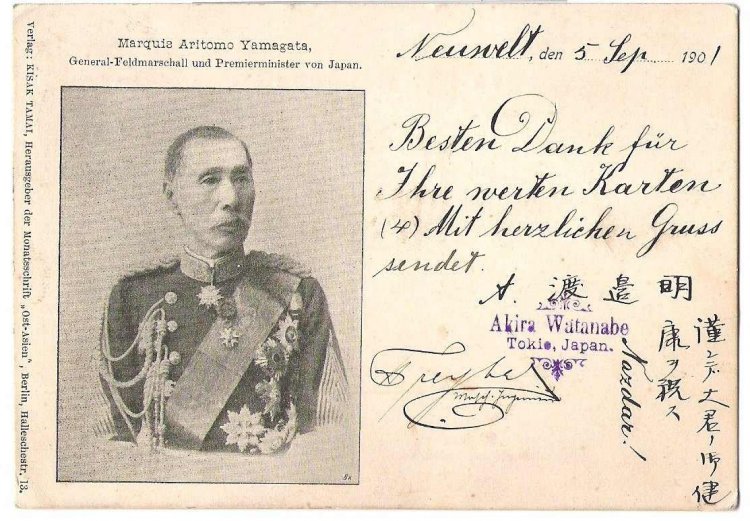 Marquis Aritomo Yamagata,
General-Feldmarschall und Premierminister von Japan.
Verlag: KISAK TAMAI, Herausgeber der Monatsschrift „Ost-Asien“, Berlin, Halleschestr. 13.
Neuwelt, den 5 Sep. 1901
Besten Dank für
Ihre werten Karten
(4) Mit herzlichen Gruss
sendet.
A. 渡邉明
Akira Watanabe
Tokio, Japan.
Nazdar!
謹ンデ大君ノ御健
康ヲ祝ス